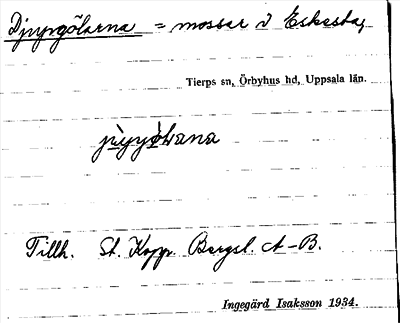 Djupgölarna = mossar i Eskesta,
Tierps sn, Örbyhus hd, Uppsala län.
Tillh. St. Kopp. Bergsl. A-B.
Ingegärd Isaksson 1934.